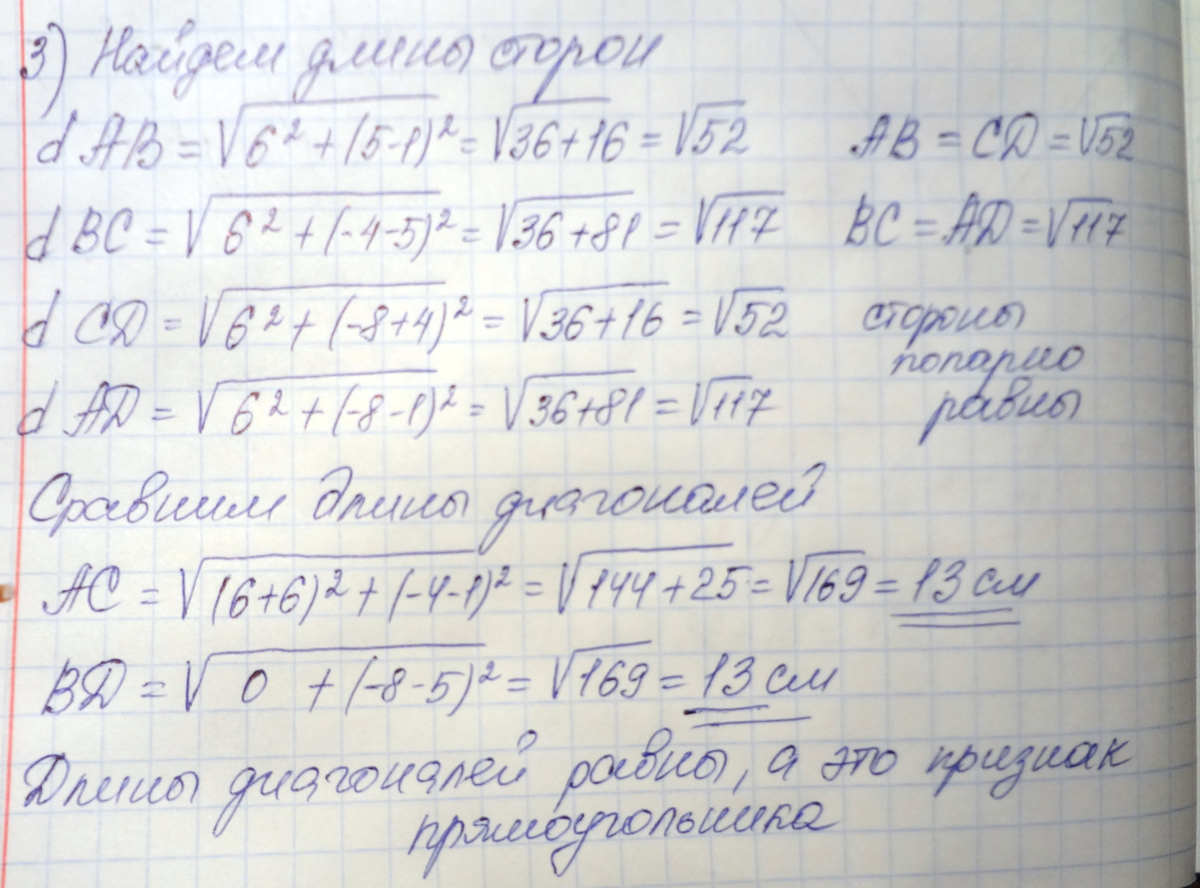 3) Найдем длины сторон
d AB = √(6² + (5-1)²) = √(36+16) = √52 AB = CD = √52
d BC = √(6² + (-4-5)²) = √(36+81) = √117 BC = AD = √117
d CD = √(6² + (-8+4)²) = √(36+16) = √52 стороны
попарно
d AD = √(6² + (-8-1)²) = √(36+81) = √117 равны
Сравним длины диагоналей
AC = √((6+6)² + (-4-1)²) = √(144+25) = √169 = 13 см
BD = √(0 + (-8-5)²) = √169 = 13 см
Длины диагоналей равны, а это признак
прямоугольника